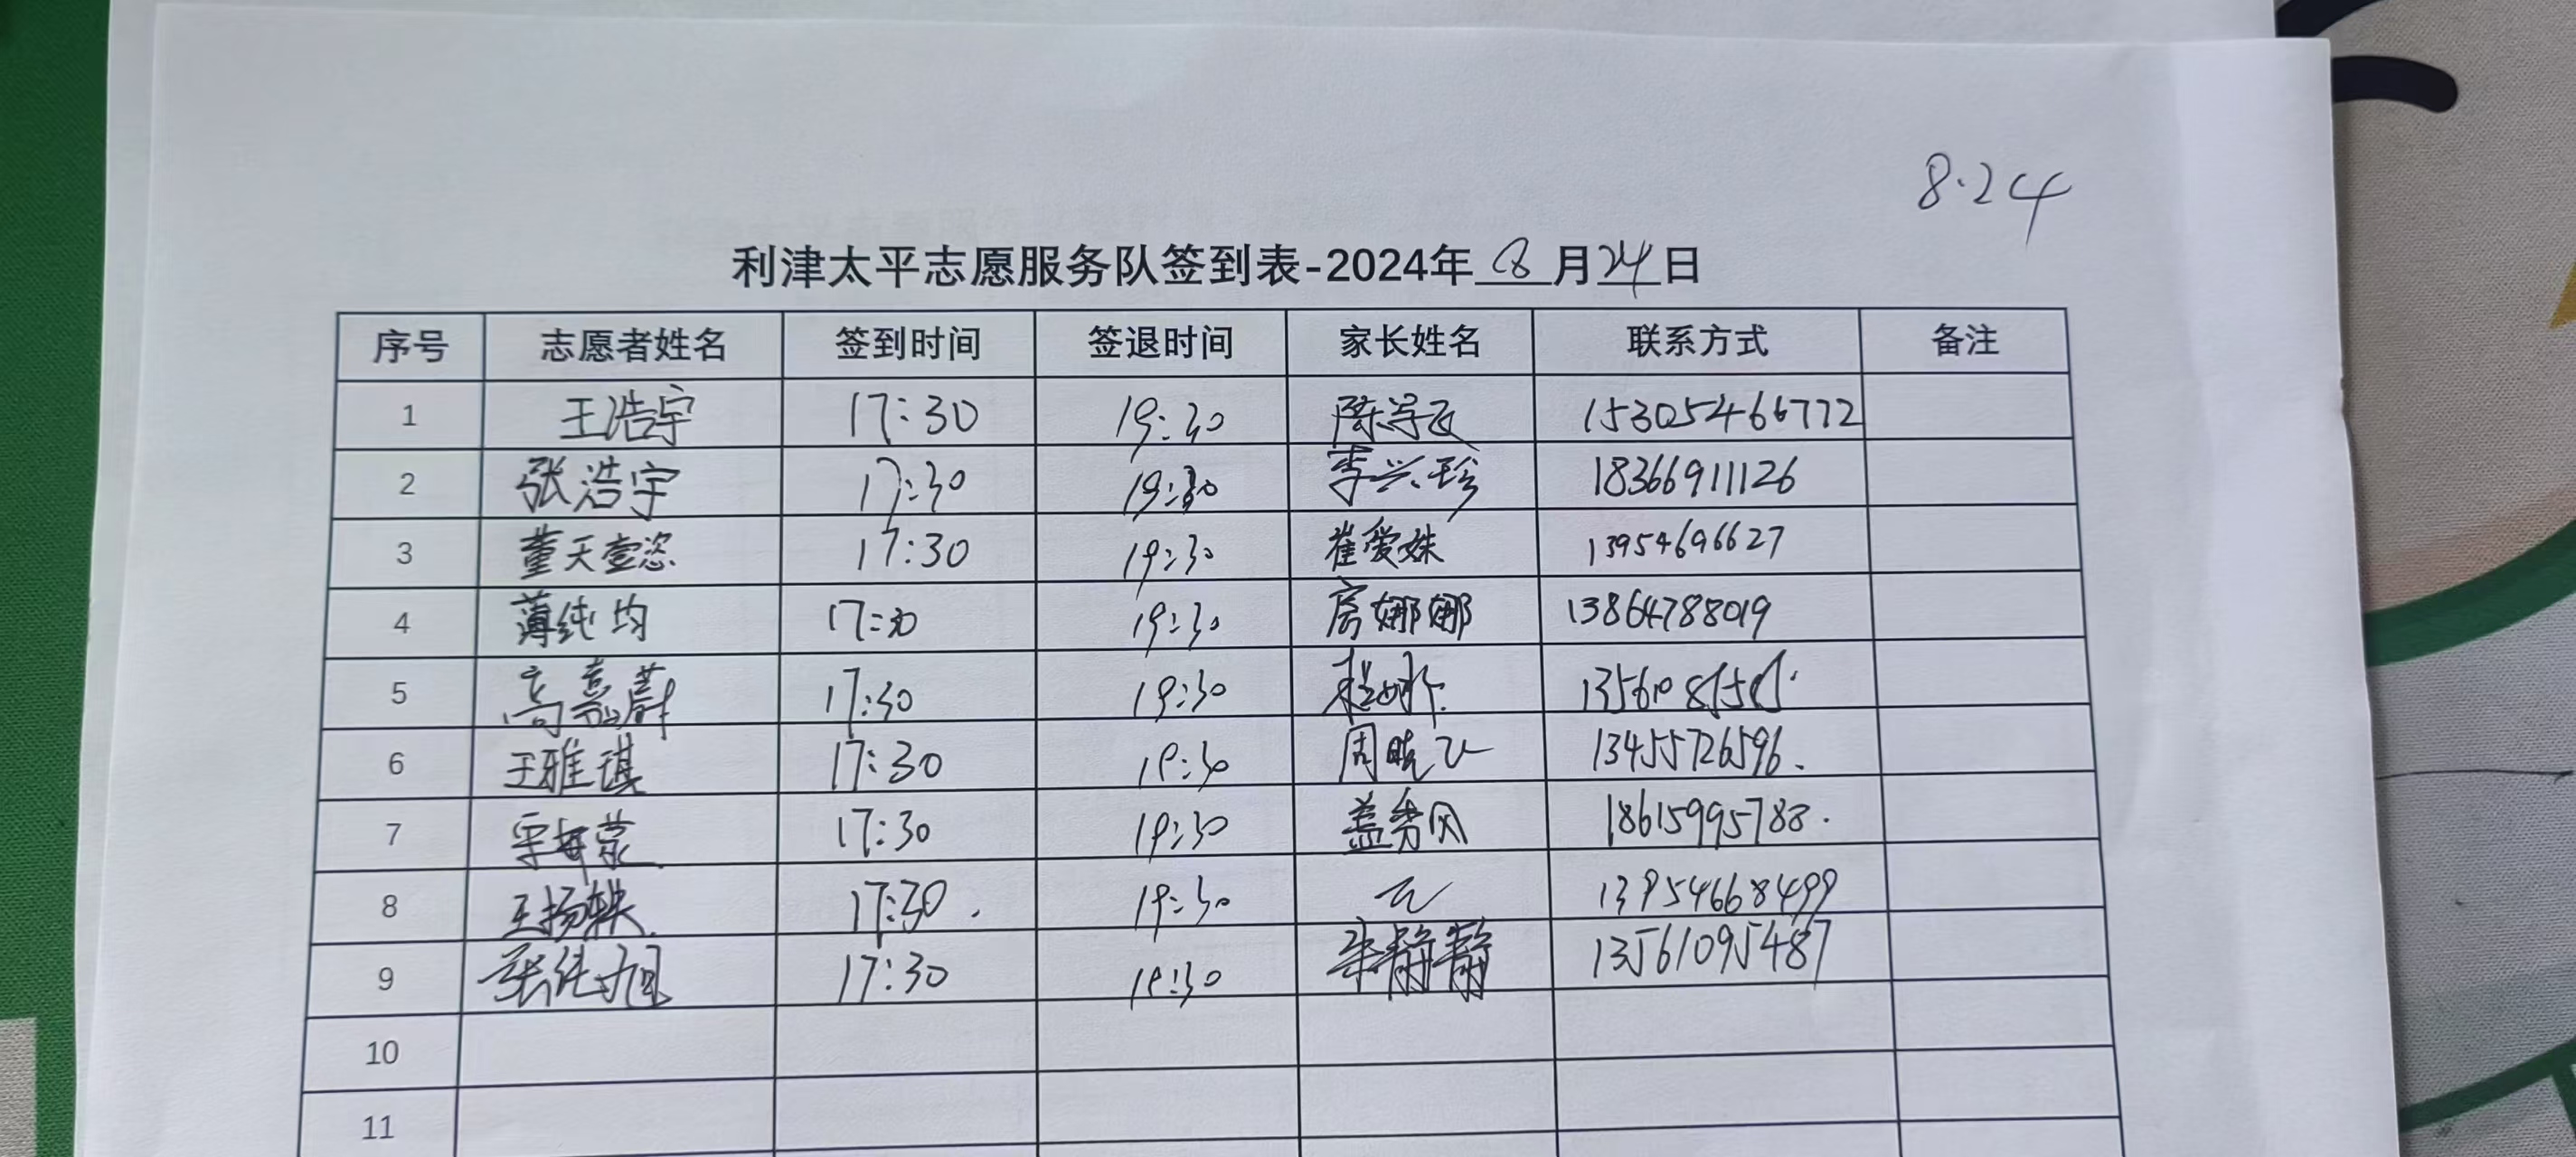 8.24
利津太平志愿服务队签到表-2024年8月24日
序号 志愿者姓名 签到时间 签退时间 家长姓名 联系方式 备注
1 王浩宇 17:30 19:30 15305466772
2 张浩宇 17:30 19:30 李兴珍 18366911126
3 董天壹恣 17:30 19:30 崔爱姝 13954696627
4 薄纯均 17:30 19:30 房娜娜 13864788019
5 高嘉蔚 17:30 19:30
6 王雅琪 17:30 19:30 周晓飞 13455726596.
7 17:30 19:30 盖秀风 18615995788.
8 王扬轶. 17:30. 19:30 13954668499
9 张纯旭 17:30 19:30 李静静 13561095487
10
11